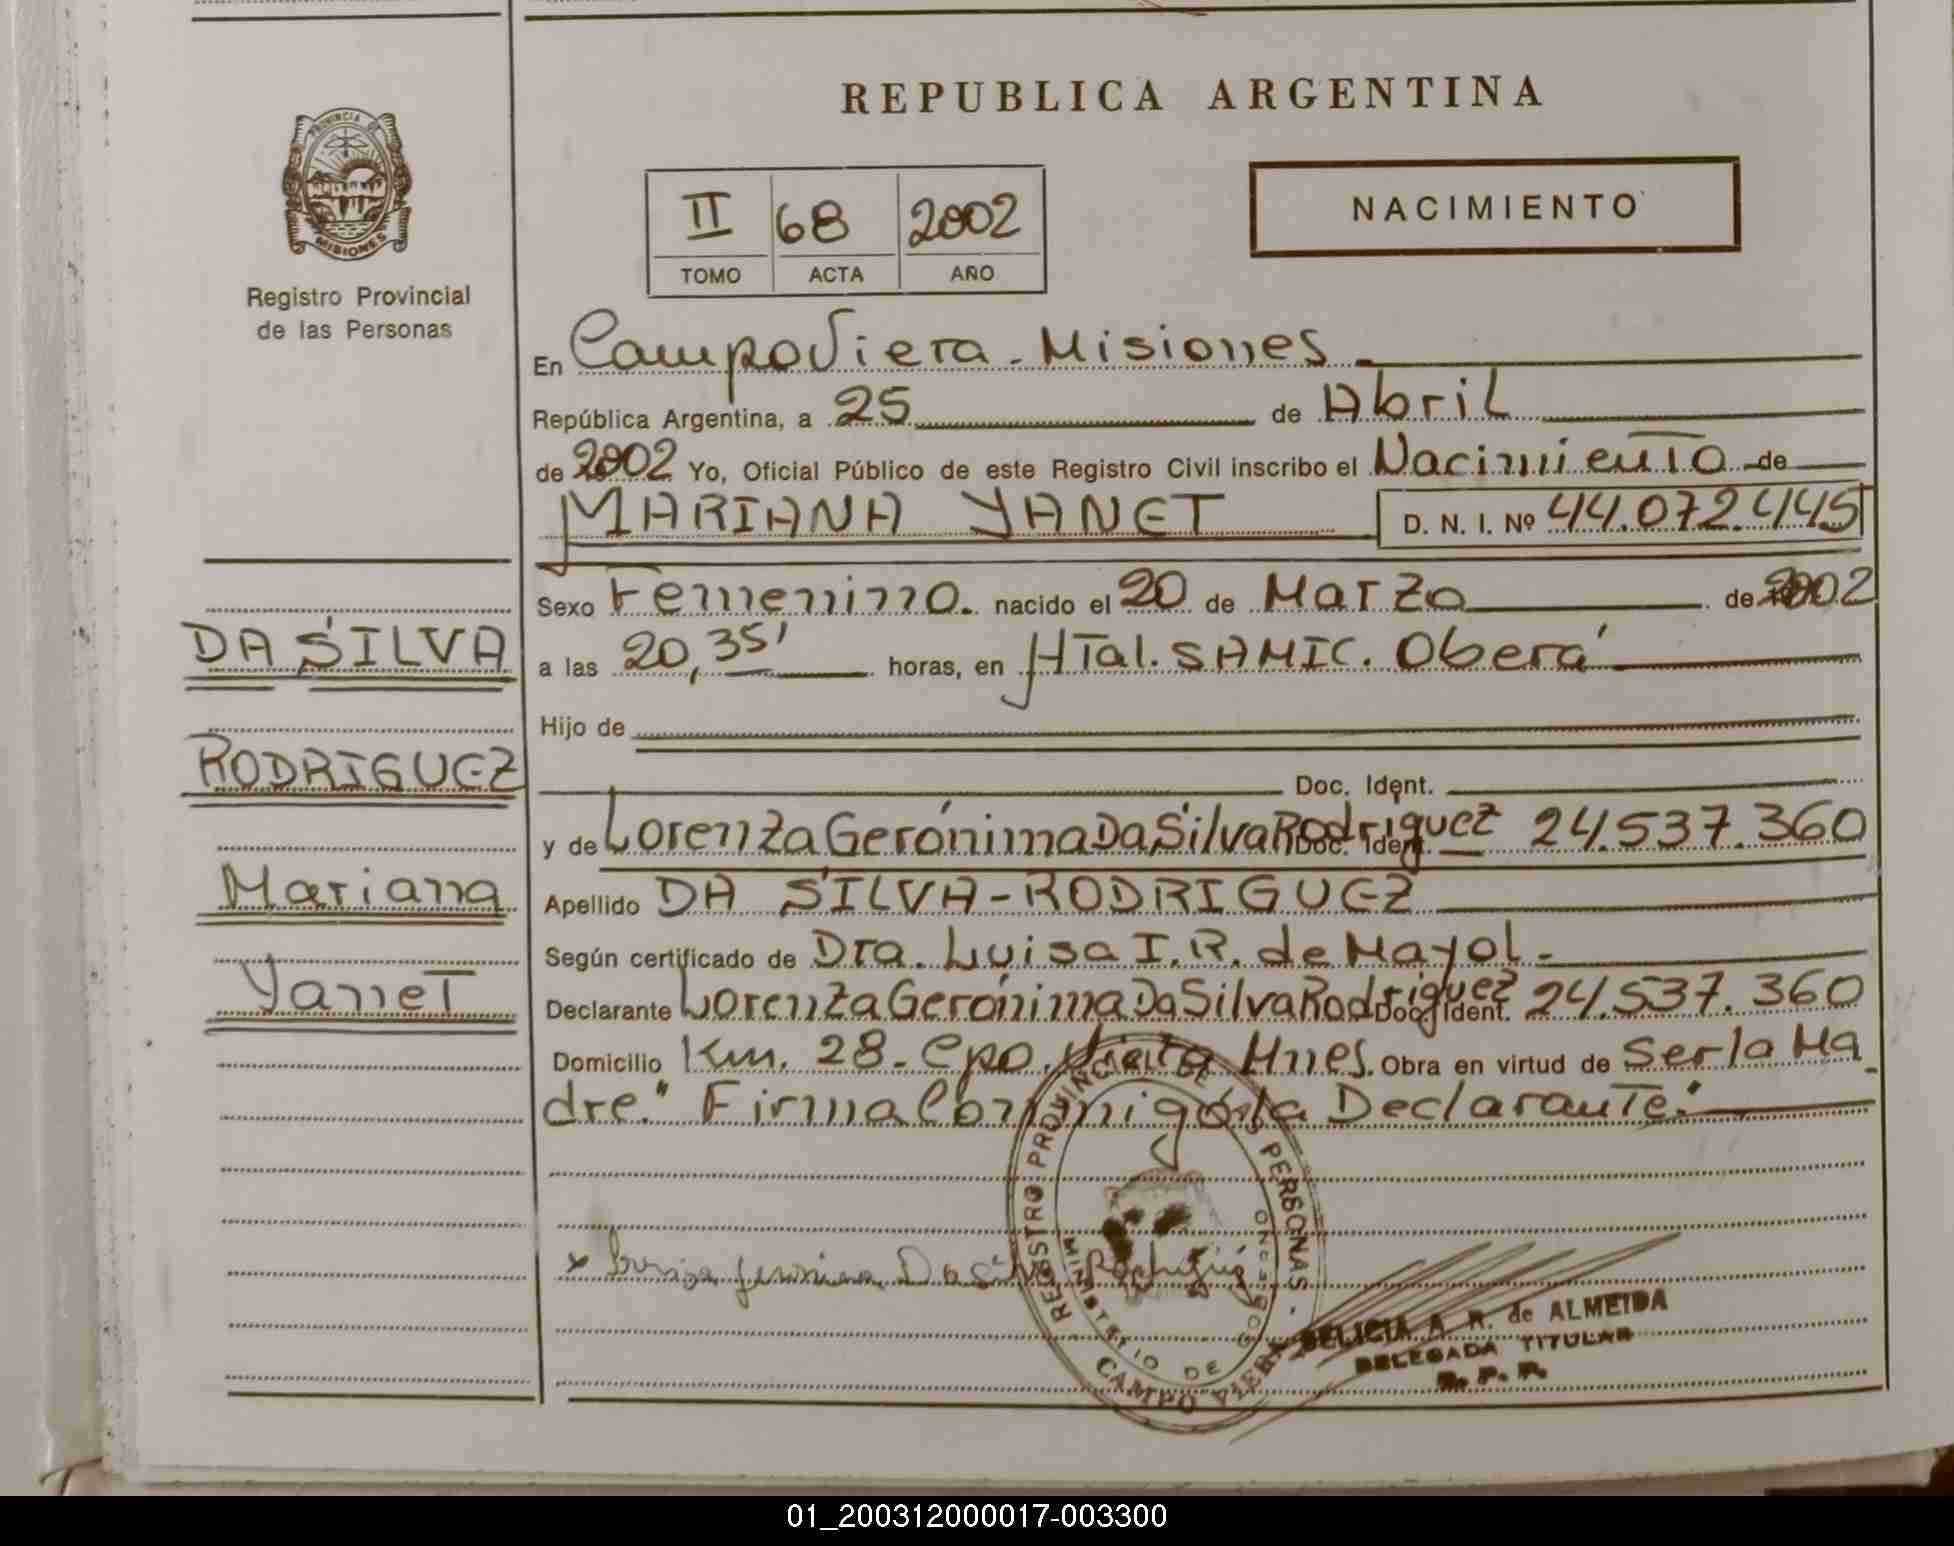 REPUBLICA ARGENTINA
PROVINCIA DE
MISIONES
Registro Provincial
de las Personas
II 68 2002
TOMO ACTA AÑO
NACIMIENTO
En Campo Viera - Misiones
República Argentina, a 25 de Abril
de 2002 Yo, Oficial Público de este Registro Civil inscribo el Nacimiento de
MARIANA YANET D. N. I. Nº 44.072.445
Sexo Femenino. nacido el 20 de Marzo de 2002
a las 20,35' horas, en HTal. SAMIC. Oberá
Hijo de
Doc. Ident.
y de Lorenza Gerónima Da Silva Rodriguez Doc. Ident. 24.537.360
Apellido DA SILVA - RODRIGUEZ
Según certificado de Dra. Luisa I. R. de Mayol -
Declarante Lorenza Gerónima Da Silva Rodriguez Doc. Ident. 24.537.360
Domicilio Km. 28 - Cpo. Viera Mnes. Obra en virtud de Ser la Ma
dre." Firma Conmigo la Declarante."
DA SILVA
RODRIGUEZ
Mariana
Yanet
REGISTRO PROVINCIAL DE LAS PERSONAS
MINISTERIO DE GOBIERNO
CAMPO VIERA
x Lorenza Geronima Da Silva Rodriguez
DELICIA A. R. de ALMEIDA
DELEGADA TITULAR
R. P. P.
01_200312000017-003300